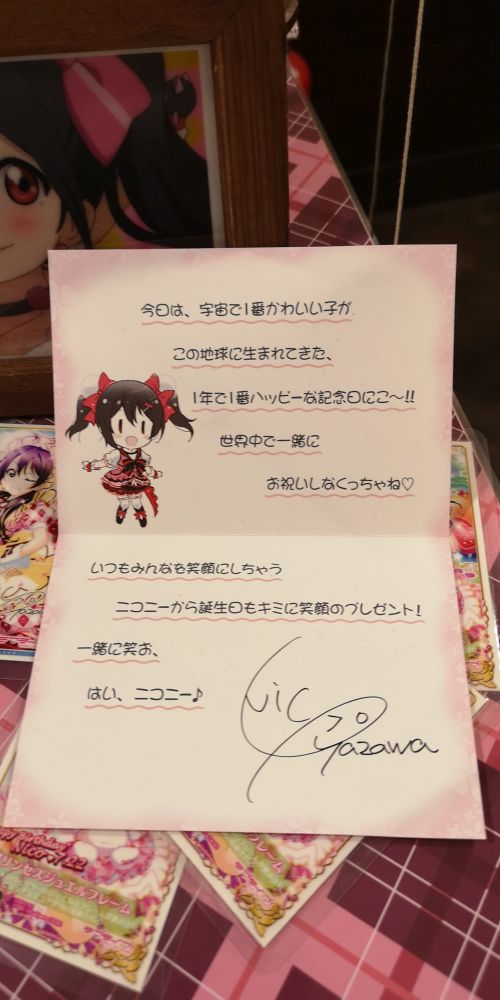 今日は、宇宙で1番かわいい子が
この地球に生まれてきた、
1年で1番ハッピーな記念日にこ〜!!
世界中で一緒に
お祝いしなくっちゃね♡
いつもみんなを笑顔にしちゃう
ニコニーから誕生日もキミに笑顔のプレゼント!
一緒に笑お、
はい、ニコニー♪
Nico
Yazawa
リンセスジュエルフレーム
ジュエルフレーム